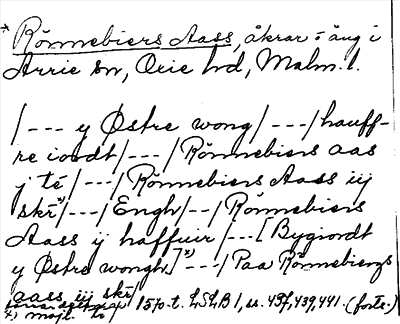 * Rönnebiers Aass, åkrar o äng i
Arrie sn, Oxie hd, Malm. l.
/--- y Østre wong/---/hauff-
re ioordt/---/Rönnebiers aas
ÿ té/---/Rönnebiers Aass iij
skr̃ x)/---/Engh/--/Rönnebiers
Aass ÿ haffuir/---[Bygiordt
y Østre wongh] x)---/Paa Rönnebiergs
aass iij skr̃/ 1570-t. LSLB 1, s. 437, 439, 441. (forts.)
x) möjl. to